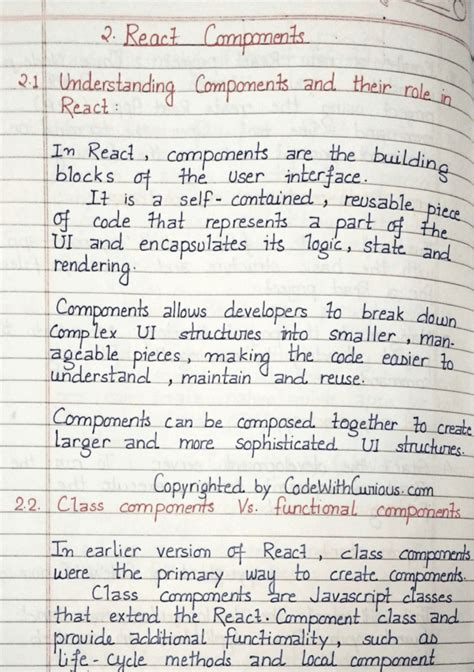 2. React Components
2.1 Understanding Components and their role in
React :
In React, components are the building
blocks of the user interface.
It is a self-contained, reusable piece
of code that represents a part of the
UI and encapsulates its logic, state and
rendering.
Components allows developers to break down
complex UI structures into smaller, man-
ageable pieces, making the code easier to
understand, maintain and reuse.
Components can be composed together to create
larger and more sophisticated UI structures.
Copyrighted by CodeWithCurious.com
2.2. Class components Vs. functional components
In earlier version of React, class components
were the primary way to create components.
Class Components are Javascript classes
that extend the React.Component class and
provide additional functionality, such as
life-cycle methods and local component